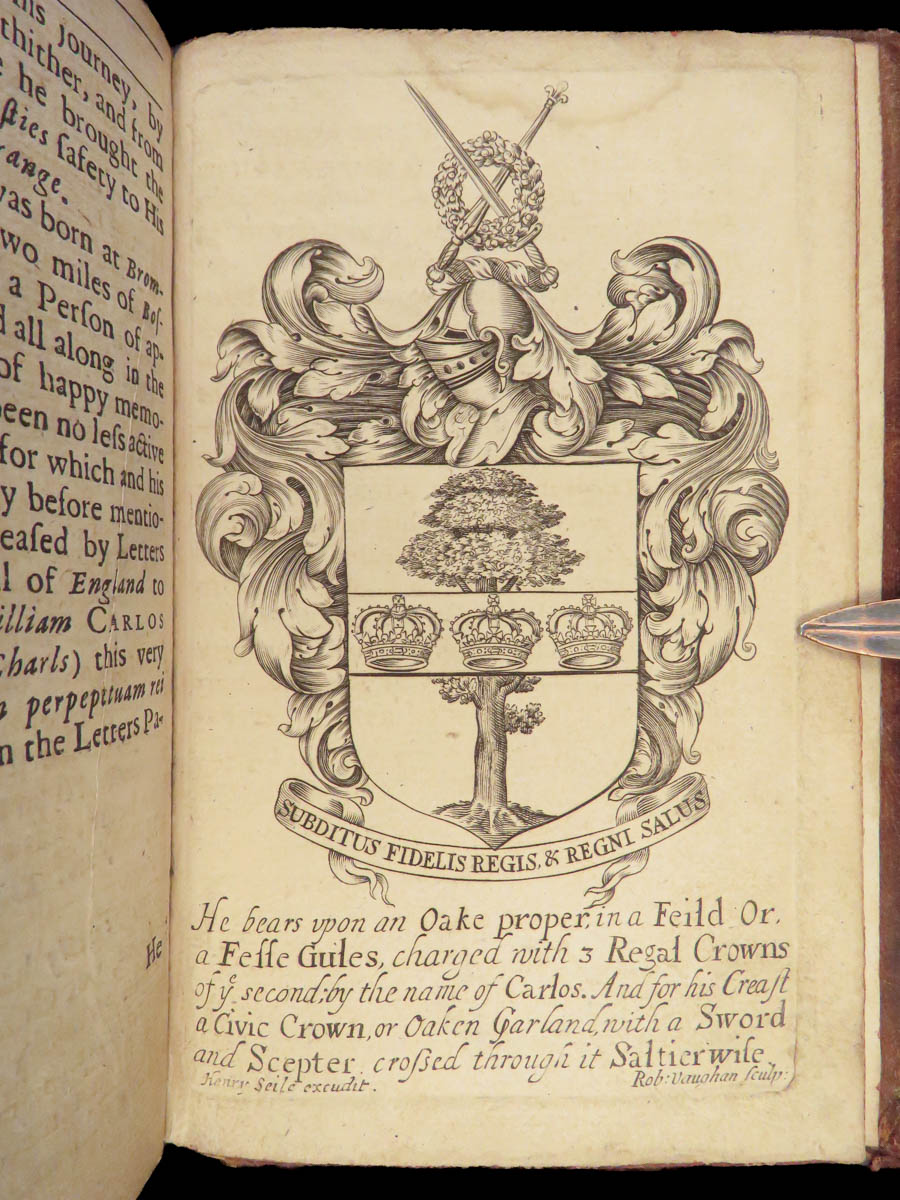 his journey, by
thither, and from
he brought the
ſties ſafety to His
range.
was born at Brom-
two miles of Boſ-
a Perſon of ap-
all along in the
of happy memo-
been no leſs active
for which and his
before mentio-
eaſed by Letters
of England to
illiam CARLOS
Charls) this very
perpepttuam rei
n the Letters Pa-
He
SUBDITUS FIDELIS REGIS, & REGNI SALUS
He bears vpon an Oake proper, in a Feild Or,
a Feſſe Gules, charged with 3 Regal Crowns
of yᵉ second: by the name of Carlos. And for his Creaſt
a Civic Crown, or Oaken Garland, with a Sword
and Scepter croſsed through it Saltierwiſe.
Henry Seile excudit.
Rob: Vaughan ſculp: